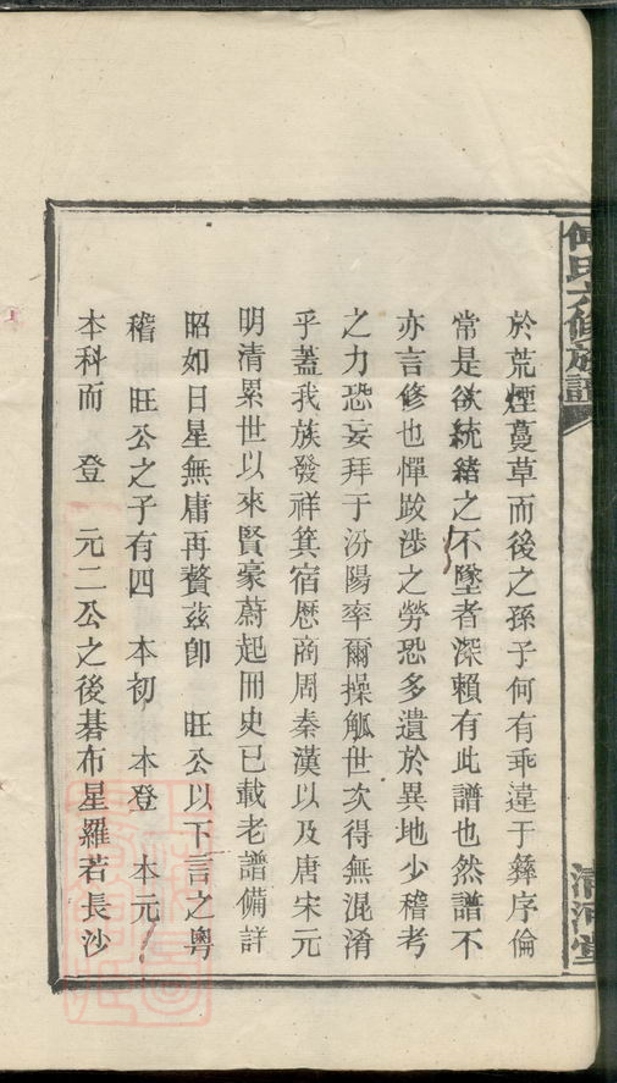 氏六修族譜
清河堂
於荒煙蔓草而後之孫子何有乖違于彝序倫
常是欲統緒之不墜者深賴有此譜也然譜不
亦言修也憚跋涉之勞恐多遺於異地少稽考
之力恐妄拜于汾陽率爾操觚世次得無混淆
乎蓋我族發祥箕宿歷商周秦漢以及唐宋元
明清累世以來賢豪蔚起冊史已載老譜備詳
昭如日星無庸再贅茲卽 旺公以下言之粵
稽 旺公之子有四 本初 本登 本元
本科而 登 元二公之後碁布星羅若長沙